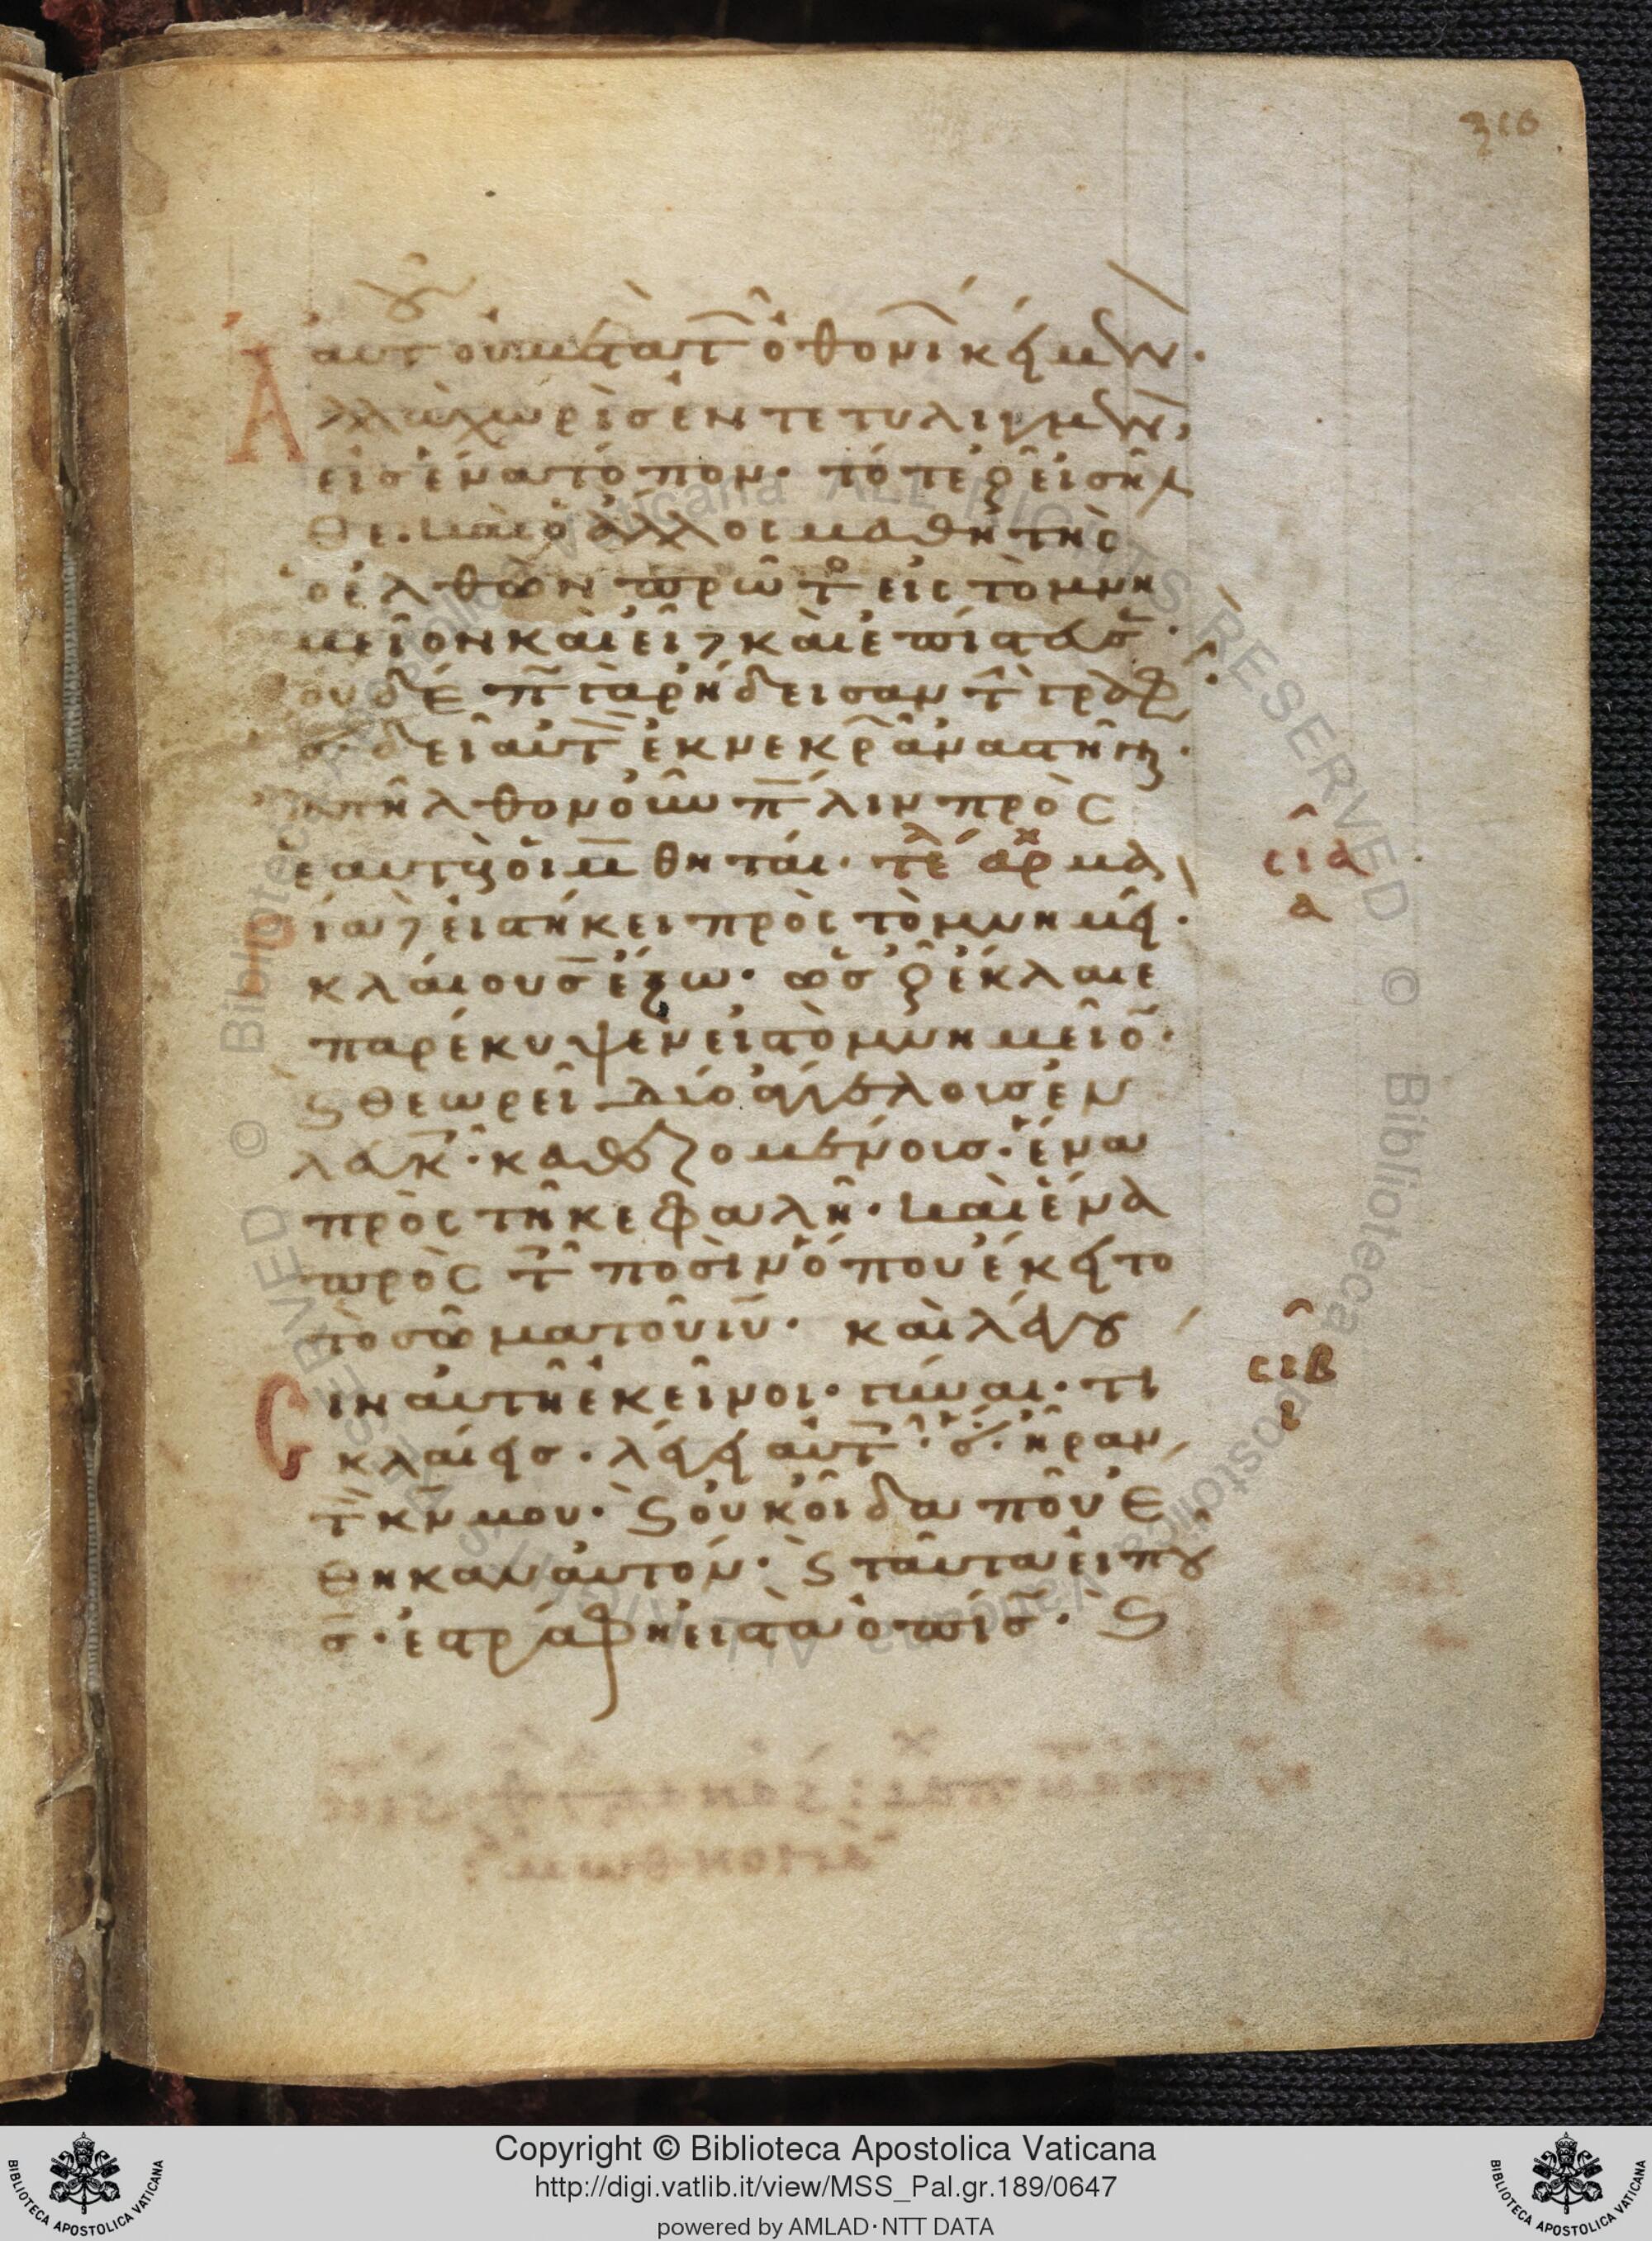 316
αυτοῦ οὐ μετὰ τῶν ὀθονίων κείμενον.
Ἀλλὰ χωρὶς ἐντετυλιγμένον,
εἰς ἕνα τόπον. τότε οὖν εἰσῆλ
θε. καὶ ὁ ἄλλος μαθητὴς
ὁ ἐλθὼν πρῶτος εἰς τὸ μνη
μεῖον καὶ εἶδε καὶ ἐπίστευσεν.
οὐδέπω γὰρ ᾔδεισαν τὴν γραφήν.
ὅτι δεῖ αὐτὸν ἐκ νεκρῶν ἀναστῆναι.
ἀπῆλθον οὖν πάλιν πρὸς
ἑαυτοὺς οἱ μαθηταί. τέλ ἀρχ μα
ρία δὲ εἱστήκει πρὸς τὸ μνημεῖ.
κλαίουσα ἔξω. ὡς οὖν ἔκλαιε
παρέκυψεν εἰς τὸ μνημεῖον.
ϛ θεωρεῖ δύο ἀγγέλους ἐν
λευκοῖς. καθεζομένους. ἕνα
πρὸς τῆ κεφαλῆ. καὶ ἕνα
πρὸς τοῖς ποσὶν ὅπου ἔκειτο
τὸ σῶμα τοῦ ιυ. καὶ λέγου
σιν αὐτῆ ἐκεῖνοι. γύναι. τί
κλαίεις. λέγει αὐτοῖς. ὅτι ἦραν
τὸν κν μου. ϛ οὐκ οἶδα ποῦ ἔ
θηκαν αὐτόν. ϛ ταῦτα εἰποῦ
σα. ἐστράφη εἰς τὰ ὀπίσω. ϛ
σια
α
σιβ
ι
Copyright © Biblioteca Apostolica Vaticana
http://digi.vatlib.it/view/MSS_Pal.gr.189/0647
powered by AMLAD·NTT DATA
BIBLIOTECA APOSTOLICA VATICANA
BIBLIOTECA APOSTOLICA VATICANA